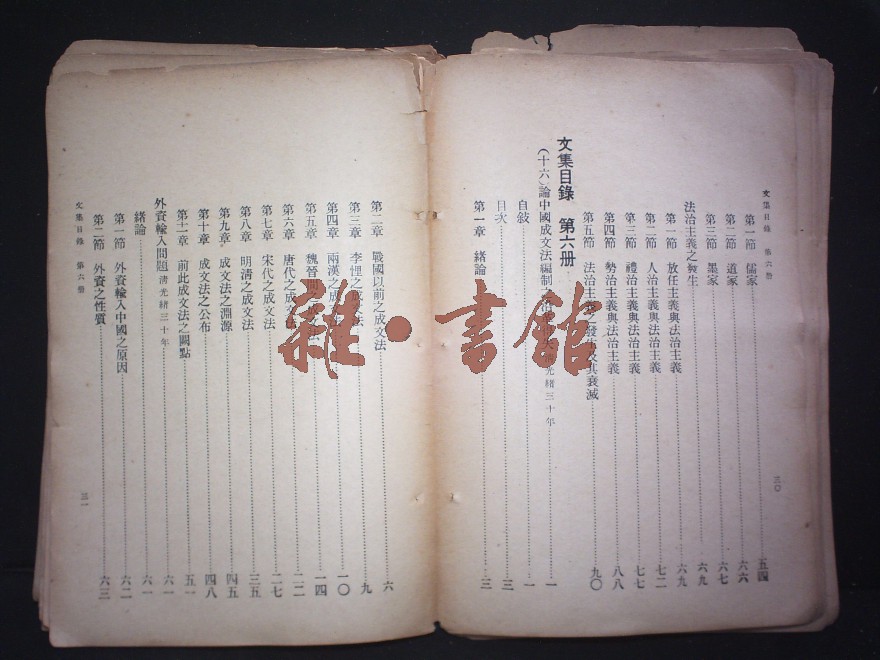 文集目錄 第六册
三〇
第一節 儒家 五四
第二節 道家 六六
第三節 墨家 六七
法治主義之發生 六九
第一節 放任主義與法治主義 六九
第二節 人治主義與法治主義 七二
第三節 禮治主義與法治主義 七七
第四節 勢治主義與法治主義 八八
第五節 法治主義之發生及其衰滅 九〇
文集目錄 第六册
(十六)論中國成文法編制之 光緒三十年 一
自敍 一
目次 三
第一章 緒論 三
第二章 戰國以前之成文法 六
第三章 李悝之成文法 九
第四章 兩漢之成文法 一〇
第五章 魏晉間之成文法 一四
第六章 唐代之成文法 二二
第七章 宋代之成文法 二七
第八章 明淸之成文法 三五
第九章 成文法之淵源 四五
第十章 成文法之公布 四八
第十一章 前此成文法之闕點 五一
外資輸入問題 淸光緒三十年 六一
緒論 六一
第一節 外資輸入中國之原因 六二
第二節 外資之性質 六三
文集目錄 第六册
三一
雜·書館